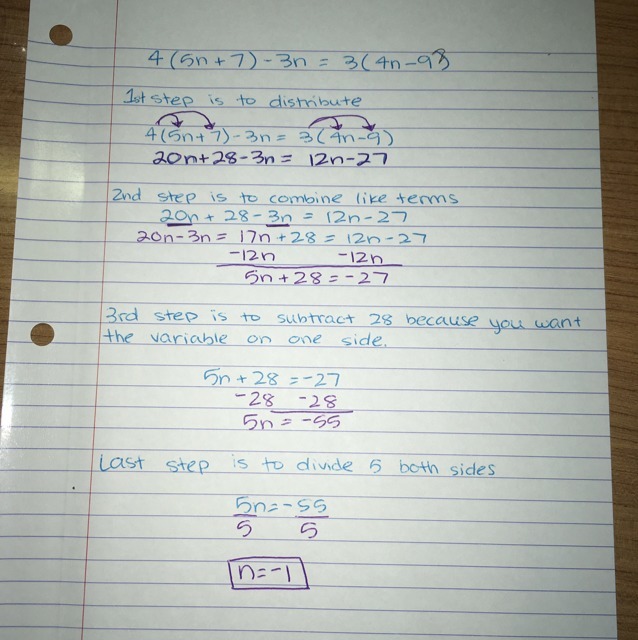 4(5n+7)-3n = 3(4n-9)
1st step is to distribute
4(5n+7)-3n = 3(4n-9)
20n+28-3n = 12n-27
2nd step is to combine like terms
20n + 28-3n = 12n-27
20n-3n = 17n+28 = 12n-27
-12n -12n
5n+28 = -27
3rd step is to subtract 28 because you want
the variable on one side.
5n + 28 = -27
-28 -28
5n = -55
Last step is to divide 5 both sides
5n = -55
5 5
n=-1